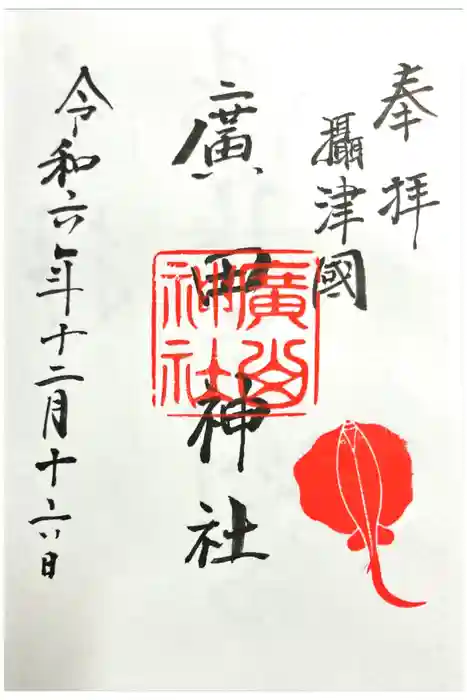 奉拝
攝津國
廣田神社
廣田
神社
令和六年十二月十六日